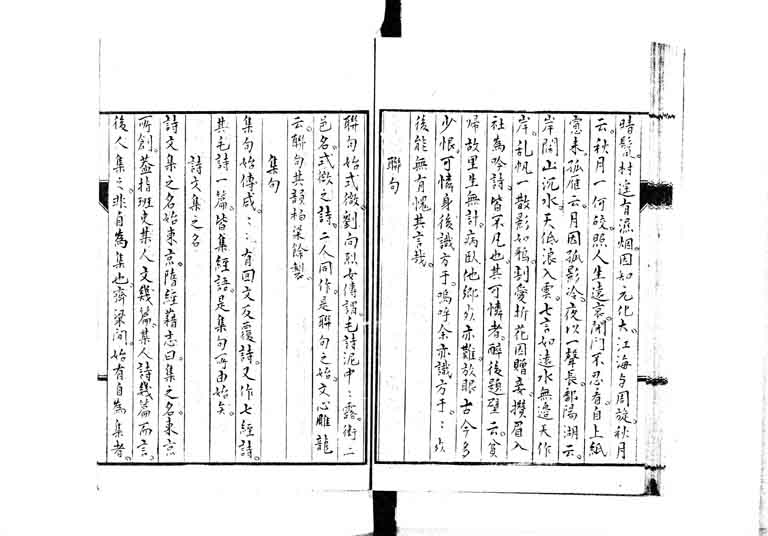 晴鬟。村逕有濕烟。因如元化大。江海与周旋。秋月
云。秋月一何皎。照人生遠哀。閉门不忍看。自上紙
窻来。孤雁云。月因孤影冷。夜以一聲長。鄱陽湖云。
岸闊山沉水。天低浪入雲。七言如遠水無邉天作
岸。乱帆一散影如鴉。割愛折花因贈妾。攢眉入
社為吟詩。皆不凡也。其可憐者。醉後題壁云。貧
歸故里生無計。病臥他鄉死亦難。放眼古今多
少恨。可憐身後識方干。嗚呼余亦識方干。：死
後能無有愧其言哉。
聯句
聯句始式微。劉向列女傳謂。毛詩泥中：露。衛二
邑名。式微之詩。二人同作。是聯句之始。文心雕龍
云。聯句共韻。柏梁餘製。
集句
集句始傅咸。：：有回文反覆詩。又作七經詩。
其毛詩一篇。皆集經語。是集句所由始矣。
詩文集之名
詩文集之名始東京。隋經籍志曰。集之名。東京
所創。蓋指班史某人文幾篇。某人詩幾篇而言。
後人集之。非自為集也。齊梁间。始有自為集者。